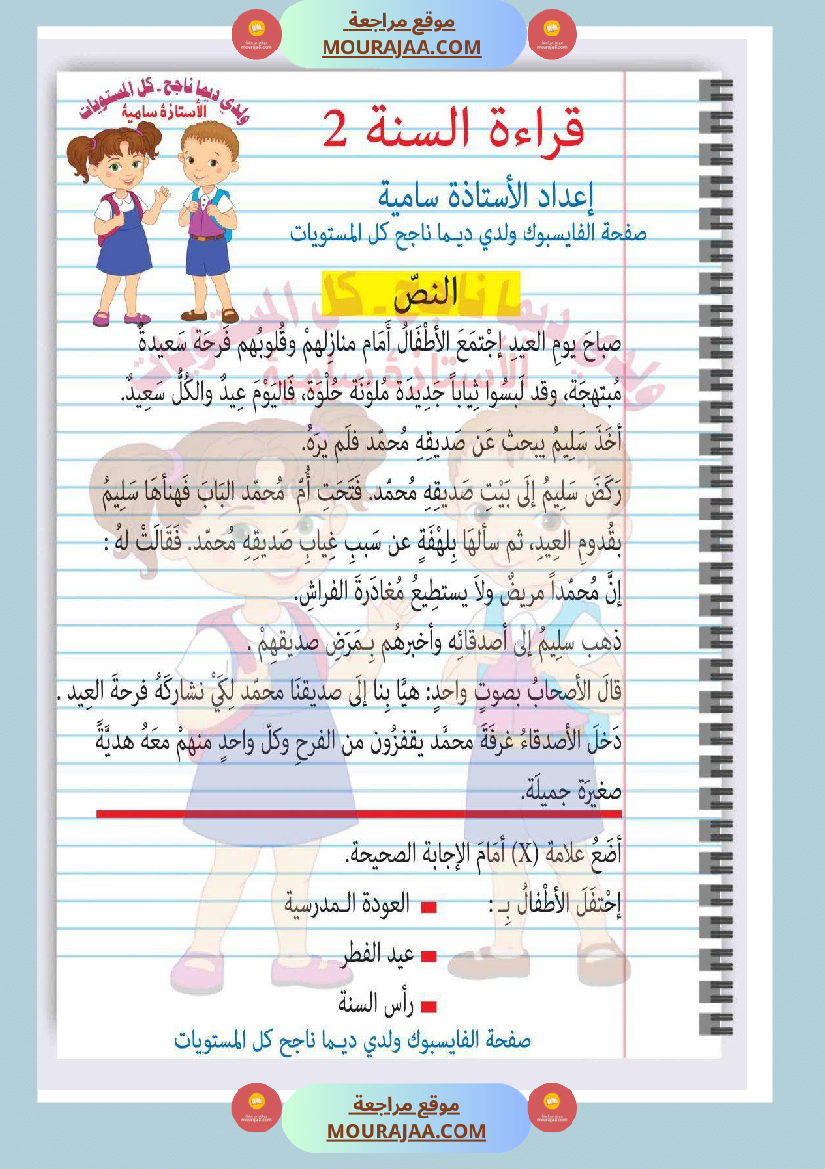 موقع مراجعة
MOURAJAA.COM
ولدي ديما ناجح ـ كل المستويات
الأستاذة سامية
قراءة السنة 2
إعداد الأستاذة سامية
صفحة الفايسبوك ولدي ديـما ناجح كل المستويات
النصّ
صباحَ يومِ العيدِ إجْتمَعَ الأطْفَالُ أَمَام منازِلِهمْ وقُلوبُهم فَرحَة سَعيدةٌ
مُبتهجَة، وقد لَبسُوا ثِياباً جَدِيدَة مُلوّنَة حُلْوَة، فَاليَوْمَ عِيدٌ والكُلُّ سَعِيدٌ.
أخَذَ سَلِيمُ يبحثُ عَن صَديقِهِ مُحمّد فلَم يرَهُ.
رَكَضَ سَلِيمُ إلَى بَيْتِ صَديقِهِ مُحمّد. فَتَحَتِ أُمّ مُحمّد البَابَ فَهنأهَا سَلِيمُ
بقُدومِ العِيدِ، ثم سألهَا بِلهْفَةٍ عن سَببِ غِيابِ صَديقِهِ مُحمّد. فَقَالَتْ لهُ :
إنَّ مُحمّداً مريضٌ ولاَ يستطِيعُ مُغادَرةَ الفراشِ.
ذهب سلِيمُ إلى أصدقائِه وأخبرهُم بِـمَرَضِ صديقهِمْ .
قالَ الأصحابُ بصوتٍ واحدٍ: هيَّا بِنا إلَى صديقنَا محمّد لِكَيْ نشاركَهُ فرحةَ العِيد .
دَخلَ الأصدقاءُ غرفَةَ محمَّد يقفزُون من الفرحِ وكلّ واحدٍ منهمْ معَهُ هديَّةً
صغيرَة جميلَة.
أضَعُ علامة (X) أمَامَ الإجابة الصحيحة.
إحْتفَلَ الأطْفالُ بِـ : العودة الـمدرسية
عيد الفطر
رأس السنة
صفحة الفايسبوك ولدي ديـما ناجح كل المستويات
موقع مراجعة
MOURAJAA.COM